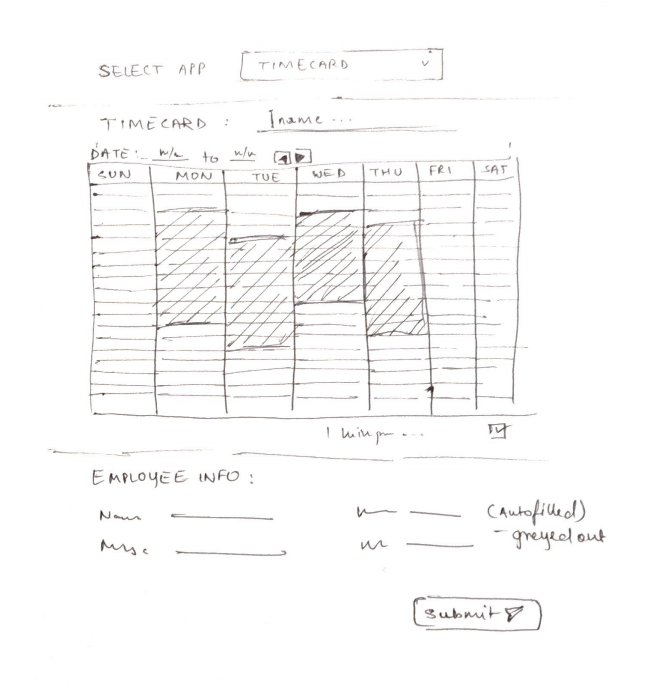 SELECT APP TIMECARD
TIMECARD : Iname ...
DATE: to
SUN MON TUE WED THU FRI SAT
EMPLOYEE INFO :
(Autofilled)
- greyed out
Submit